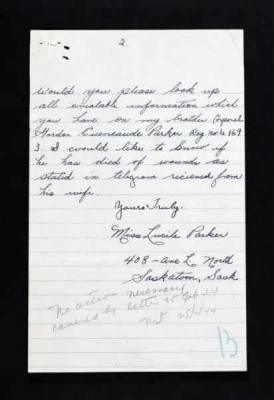 2.
Would you please look up
all available information which
you have on my brother Corporal
Gordon Parker Reg no. 169
3. I would like to know if
he has died of wounds as
stated in telegram recieved from
his wife.
Yours Truly.
Miss Lucile Parker
408 - Ave L. North
Saskatoon, Sask
No action necessary
covered by letter 25 Feb 44
13